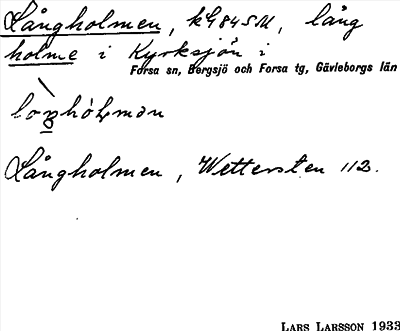 Långholmen, k G 84 S M, lång
holme i Kyrksjön i
Forsa sn, Bergsjö och Forsa tg, Gävleborgs län
Långholmen, Wettersten 112.
LARS LARSSON 1933